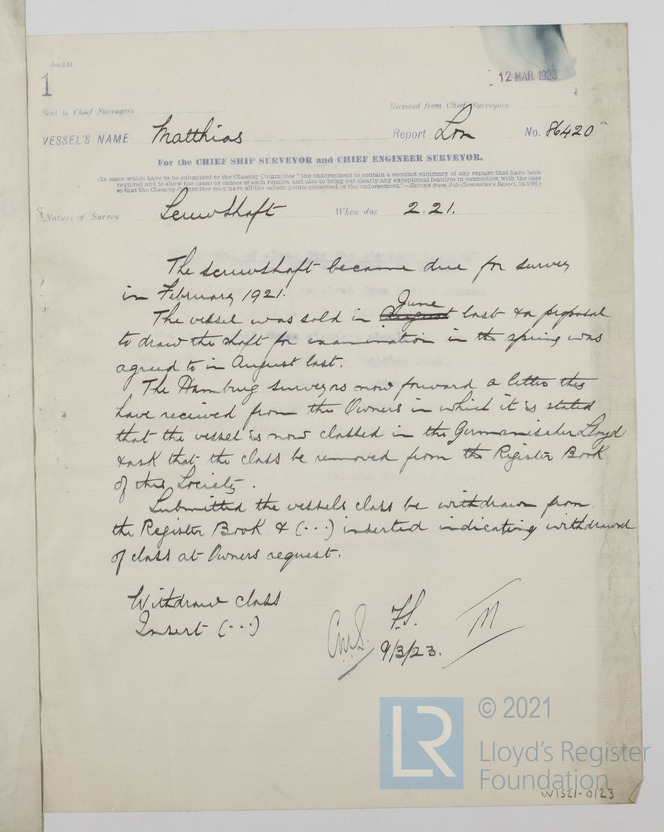 1
12 MAR 192
Sent to Chief Surveyors
Received from Chief Surveyors
VESSEL'S NAME Matthias Report Lon No. 86420
For the CHIEF SHIP SURVEYOR and CHIEF ENGINEER SURVEYOR.
(In cases which have to be submitted to the Classing Committee "the endorsement to contain a succinct summary of any repairs that have been
required and to show the cause or causes of such repairs, and also to bring out clearly any exceptional features in connection with the case
so that the Classing Committee may have all the salient points presented in the endorsement."—Extract from Sub-Committee's Report,
Nature of Survey Screwshaft When due 2.21.
The screwshaft became due for survey
in February 1921.
June
The vessel was sold in August last & a proposal
to draw the shaft for examination in the spring was
agreed to in August last.
The Hamburg surveyors now forward a letter they
have received from the Owners in which it is stated
that the vessel is now classed in the Germanischer Lloyd
& ask that the class be removed from the Register Book
of this Society.
Submitted the vessels class be withdrawn from
the Register Book & (...) inserted indicating withdrawal
of class at Owners request.
Withdraw class
Insert (...)
F.S.
9/3/23.
LR
© 2021
Lloyd's Register
Foundation
W1521-0123